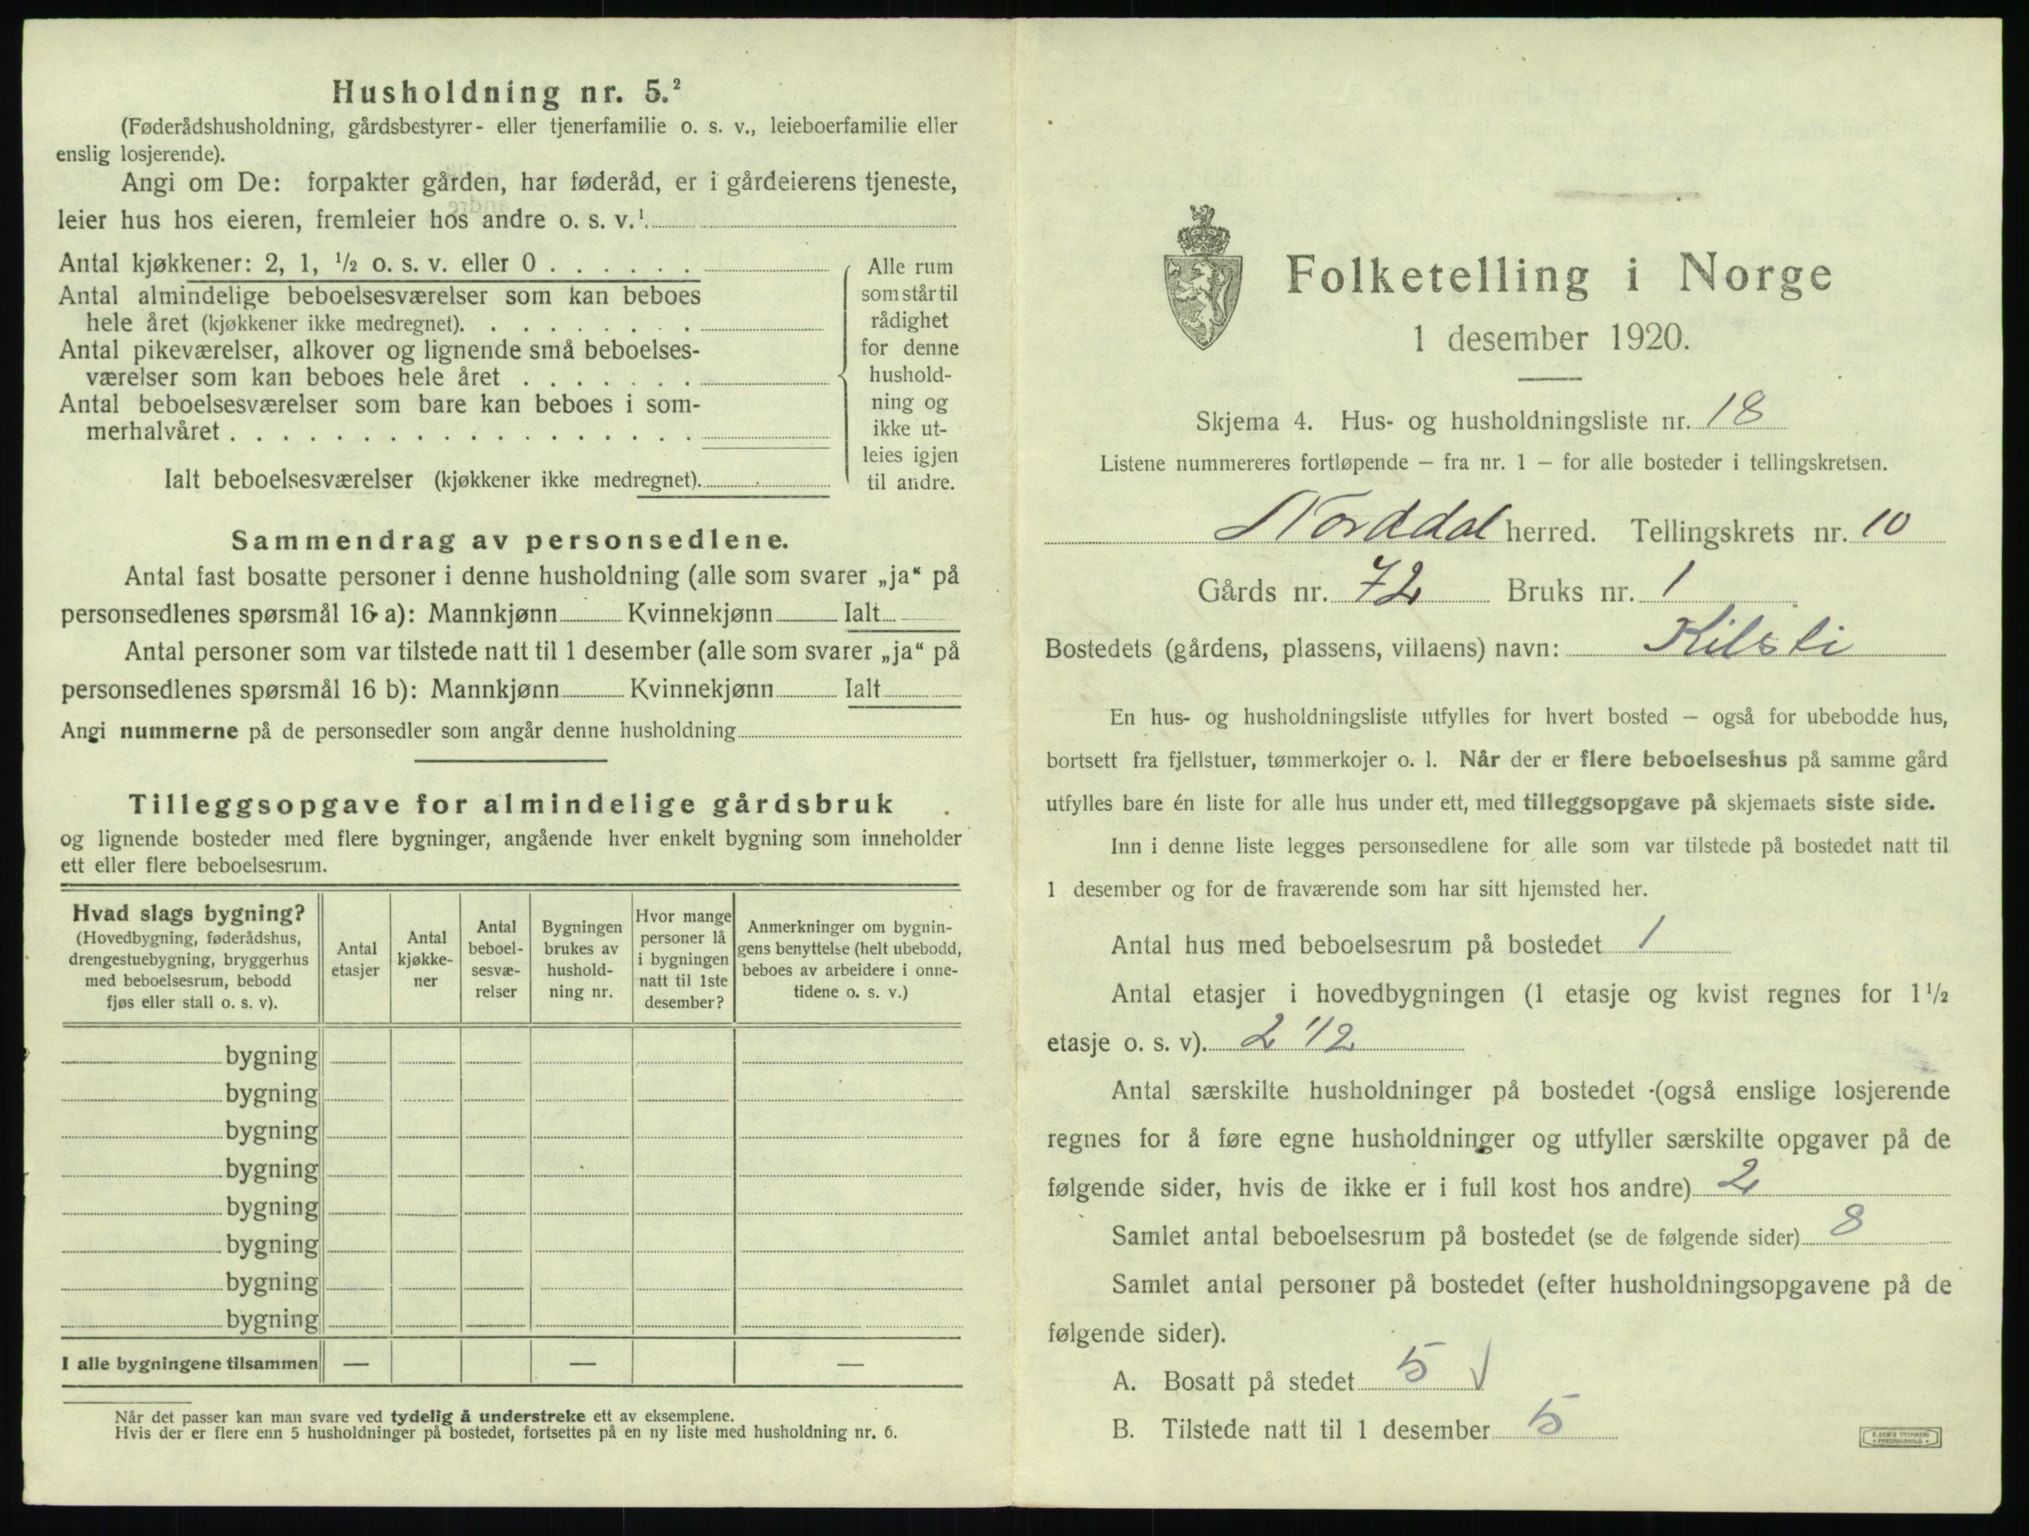 Husholdning nr. 5.²
(Føderådshusholdning, gårdsbestyrer- eller tjenerfamilie o. s. v., leieboerfamilie eller
enslig losjerende).
Angi om De: forpakter gården, har føderåd, er i gårdeierens tjeneste,
leier hus hos eieren, fremleier hos andre o. s. v.¹
Antal kjøkkener: 2, 1, ½ o. s. v. eller 0 . . . . . .
Antal almindelige beboelsesværelser som kan beboes
hele året (kjøkkener ikke medregnet). . . . . . . . .
Antal pikeværelser, alkover og lignende små beboelses-
værelser som kan beboes hele året . . . . . . .
Antal beboelsesværelser som bare kan beboes i som-
merhalvåret . . . . . . . . . . . . . . . . . .
Ialt beboelsesværelser (kjøkkener ikke medregnet).
Alle rum
som står til
rådighet
for denne
hushold-
ning og
ikke ut-
leies igjen
til andre.
Sammendrag av personsedlene.
Antal fast bosatte personer i denne husholdning (alle som svarer „ja“ på
personsedlenes spørsmål 16 a): Mannkjønn Kvinnekjønn Ialt
Antal personer som var tilstede natt til 1 desember (alle som svarer „ja“ på
personsedlenes spørsmål 16 b): Mannkjønn Kvinnekjønn Ialt
Angi nummerne på de personsedler som angår denne husholdning
Tilleggsopgave for almindelige gårdsbruk
og lignende bosteder med flere bygninger, angående hver enkelt bygning som inneholder
ett eller flere beboelsesrum.
Hvad slags bygning?
(Hovedbygning, føderådshus,
drengestuebygning, bryggerhus
med beboelsesrum, bebodd
fjøs eller stall o. s. v).
Antal
etasjer
Antal
kjøkke-
ner
Antal
beboel-
sesvæ-
relser
Bygningen
brukes av
hushold-
ning nr.
Hvor mange
personer lå
i bygningen
natt til 1ste
desember?
Anmerkninger om bygnin-
gens benyttelse (helt ubebodd,
beboes av arbeidere i onne-
tidene o. s. v.)
bygning
bygning
bygning
bygning
bygning
bygning
bygning
bygning
I alle bygningene tilsammen — — —
Når det passer kan man svare ved tydelig å understreke ett av eksemplene.
Hvis der er flere enn 5 husholdninger på bostedet, fortsettes på en ny liste med husholdning nr. 6.
Folketelling i Norge
1 desember 1920.
Skjema 4. Hus- og husholdningsliste nr. 18
Listene nummereres fortløpende – fra nr. 1 – for alle bosteder i tellingskretsen.
Norddal herred. Tellingskrets nr. 10
Gårds nr. 72 Bruks nr. 1
Bostedets (gårdens, plassens, villaens) navn: Kilsti
En hus- og husholdningsliste utfylles for hvert bosted – også for ubebodde hus,
bortsett fra fjellstuer, tømmerkojer o. l. Når der er flere beboelseshus på samme gård
utfylles bare én liste for alle hus under ett, med tilleggsopgave på skjemaets siste side.
Inn i denne liste legges personsedlene for alle som var tilstede på bostedet natt til
1 desember og for de fraværende som har sitt hjemsted her.
Antal hus med beboelsesrum på bostedet 1
Antal etasjer i hovedbygningen (1 etasje og kvist regnes for 1½
etasje o. s. v). 2 1/2
Antal særskilte husholdninger på bostedet (også enslige losjerende
regnes for å føre egne husholdninger og utfyller særskilte opgaver på de
følgende sider, hvis de ikke er i full kost hos andre) 2
Samlet antal beboelsesrum på bostedet (se de følgende sider) 8
Samlet antal personer på bostedet (efter husholdningsopgavene på de
følgende sider).
A. Bosatt på stedet 5 √
B. Tilstede natt til 1 desember 5